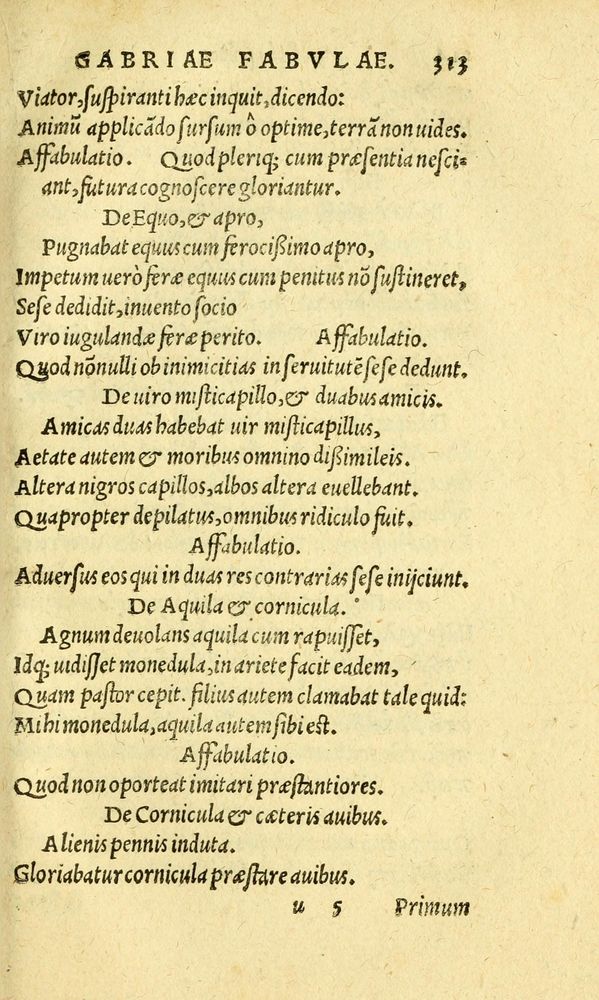 GABRIAE FABVLAE. 313
Viator, suſpiranti hæc inquit, dicendo:
Animũ applicãdo ſurſum ô optime, terrã non uides.
Affabulatio. Quod pleriq; cum præſentia neſci-
ant, futura cognoſcere gloriantur.
De Equo, & apro,
Pugnabat equus cum ferocißimo apro,
Impetum uerò feræ equus cum penitus nõ ſuſtineret,
Seſe dedidit, inuento ſocio
Viro iugulandæ feræ perito. Affabulatio.
Quod nõnulli ob inimicitias in ſeruitutẽ ſeſe dedunt.
De uiro miſticapillo, & duabus amicis.
Amicas duas habebat uir miſticapillus,
Aetate autem & moribus omnino dißimileis.
Altera nigros capillos, albos altera euellebant.
Quapropter depilatus, omnibus ridiculo fuit.
Affabulatio.
Aduerſus eos qui in duas res contrarias ſeſe inijciunt.
De Aquila & cornicula.
Agnum deuolans aquila cum rapuiſſet,
Idq; uidiſſet monedula, in ariete facit eadem,
Quam paſtor cepit. filius autem clamabat tale quid:
Mihi monedula, aquila autem ſibi eſt.
Affabulatio.
Quod non oporteat imitari præſtantiores.
De Cornicula & cæteris auibus.
Alienis pennis induta.
Gloriabatur cornicula præſtare auibus.
u 5 Primum